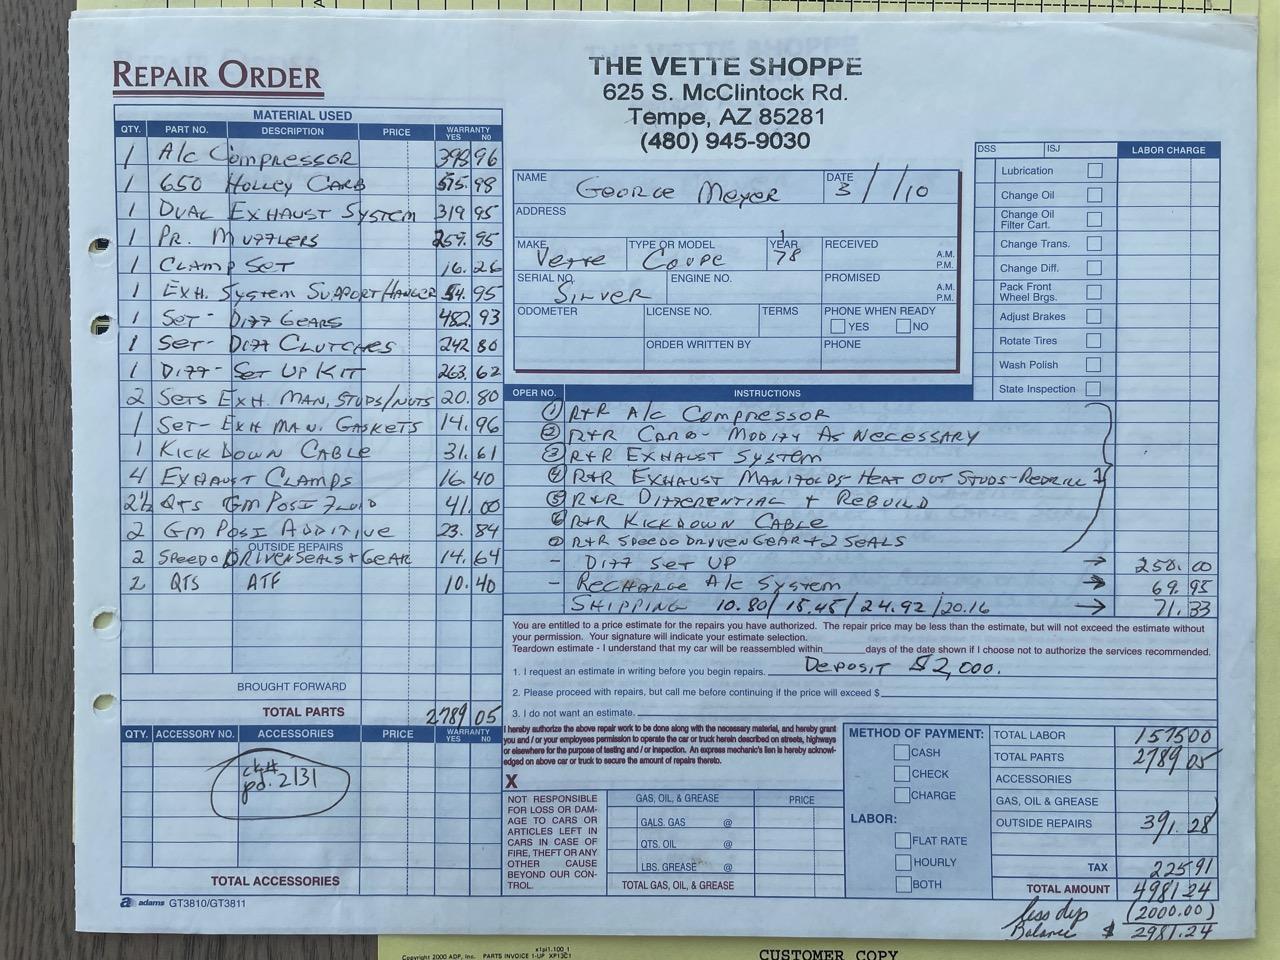 REPAIR ORDER
THE VETTE SHOPPE
625 S. McClintock Rd.
Tempe, AZ 85281
(480) 945-9030
MATERIAL USED
QTY. PART NO. DESCRIPTION PRICE WARRANTY YES NO
1 A/c Compressor 398 96
1 650 Holley Carb 575.98
1 Dual Exhaust System 319 95
1 Pr. Mufflers 259.95
1 Clamp Set 16.26
1 Exh. System Support Hanger 54.95
1 Set- Diff Gears 482.93
1 Set- Diff Clutches 242 80
1 Diff- Set Up Kit 263.62
2 Sets Exh. Man, Studs/Nuts 20.80
1 Set- Exh Man. Gaskets 14.96
1 Kick Down Cable 31.61
4 Exhaust Clamps 16 40
2½ Qts GM Posi Fluid 41.00
2 GM Posi Additive 23.84
OUTSIDE REPAIRS
2 Speedo Driven Seals + Gear 14.64
2 QTS ATF 10.40
BROUGHT FORWARD
TOTAL PARTS 2789 05
QTY. ACCESSORY NO. ACCESSORIES PRICE WARRANTY YES NO
ck#
pd. 2131
TOTAL ACCESSORIES
adams GT3810/GT3811
NAME George Meyer DATE 3/ /10
ADDRESS
MAKE Vette TYPE OR MODEL Coupe YEAR 78 RECEIVED A.M. P.M.
SERIAL NO. Silver ENGINE NO. PROMISED A.M. P.M.
ODOMETER LICENSE NO. TERMS PHONE WHEN READY YES NO
ORDER WRITTEN BY PHONE
DSS ISJ LABOR CHARGE
Lubrication
Change Oil
Change Oil Filter Cart.
Change Trans.
Change Diff.
Pack Front Wheel Brgs.
Adjust Brakes
Rotate Tires
Wash Polish
State Inspection
OPER NO. INSTRUCTIONS
① R+R A/c Compressor
② R+R Carb- Modify As Necessary
③ R+R Exhaust System
④ R+R Exhaust Manifolds- Heat Out Studs- Redrill
⑤ R&R Differential + Rebuild
⑥ R+R Kickdown Cable
⑦ R+R Speedo Driven Gear + 2 Seals
- Diff Set Up → 250.00
- Recharge A/c System → 69.95
Shipping 10.80/ 15.45/ 24.92/ 20.16 → 71.33
You are entitled to a price estimate for the repairs you have authorized. The repair price may be less than the estimate, but will not exceed the estimate without
your permission. Your signature will indicate your estimate selection.
Teardown estimate - I understand that my car will be reassembled within days of the date shown if I choose not to authorize the services recommended.
1. I request an estimate in writing before you begin repairs. Deposit $2,000.
2. Please proceed with repairs, but call me before continuing if the price will exceed $
3. I do not want an estimate.
I hereby authorize the above repair work to be done along with the necessary material, and hereby grant
you and / or your employees permission to operate the car or truck herein described on streets, highways
or elsewhere for the purpose of testing and / or inspection. An express mechanic's lien is hereby acknowl-
edged on above car or truck to secure the amount of repairs thereto.
X
NOT RESPONSIBLE
FOR LOSS OR DAM-
AGE TO CARS OR
ARTICLES LEFT IN
CARS IN CASE OF
FIRE, THEFT OR ANY
OTHER CAUSE
BEYOND OUR CON-
TROL.
GAS, OIL, & GREASE PRICE
GALS. GAS @
QTS. OIL @
LBS. GREASE @
TOTAL GAS, OIL, & GREASE
METHOD OF PAYMENT:
CASH
CHECK
CHARGE
LABOR:
FLAT RATE
HOURLY
BOTH
TOTAL LABOR 1575 00
TOTAL PARTS 2789 05
ACCESSORIES
GAS, OIL & GREASE
OUTSIDE REPAIRS 391.28
TAX 225 91
TOTAL AMOUNT 4981.24
less dep (2000.00)
Balance $ 2981.24
Copyright 2000 ADP, Inc. PARTS INVOICE 1-UP
CUSTOMER COPY